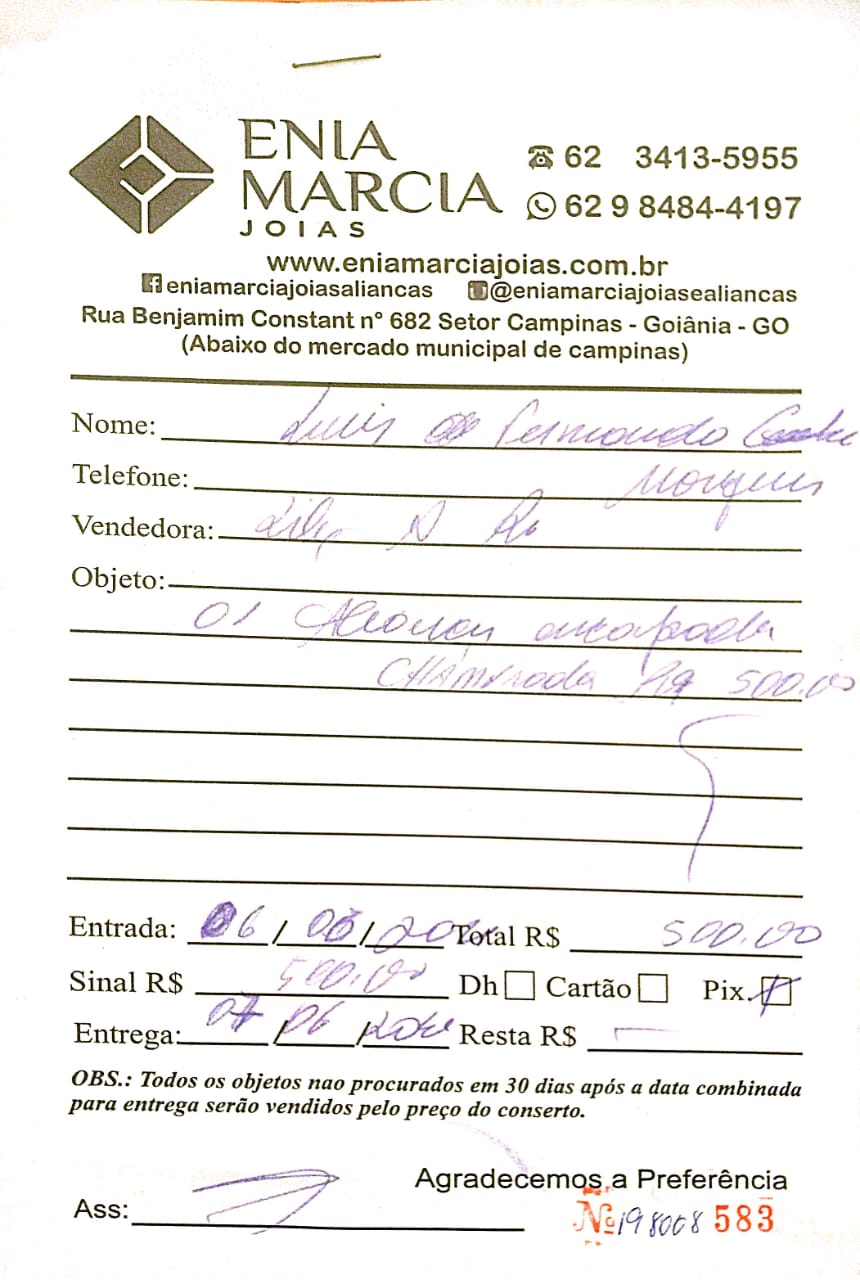 ENIA
MARCIA
JOIAS
62 3413-5955
62 9 8484-4197
www.eniamarciajoias.com.br
eniamarciajoiasaliancas @eniamarciajoiasealiancas
Rua Benjamim Constant nº 682 Setor Campinas - Goiânia - GO
(Abaixo do mercado municipal de campinas)
Nome: Luis Fernando
Telefone: Marques
Vendedora:
Objeto:
01 Aliança encapada
Chanfrada 500.00
Entrada: 06/06/ Total R$ 500.00
Sinal R$ 500.00 Dh Cartão Pix
Entrega: 07/06/ Resta R$
OBS.: Todos os objetos nao procurados em 30 dias após a data combinada
para entrega serão vendidos pelo preço do conserto.
Agradecemos a Preferência
Ass: Nº 198008 583